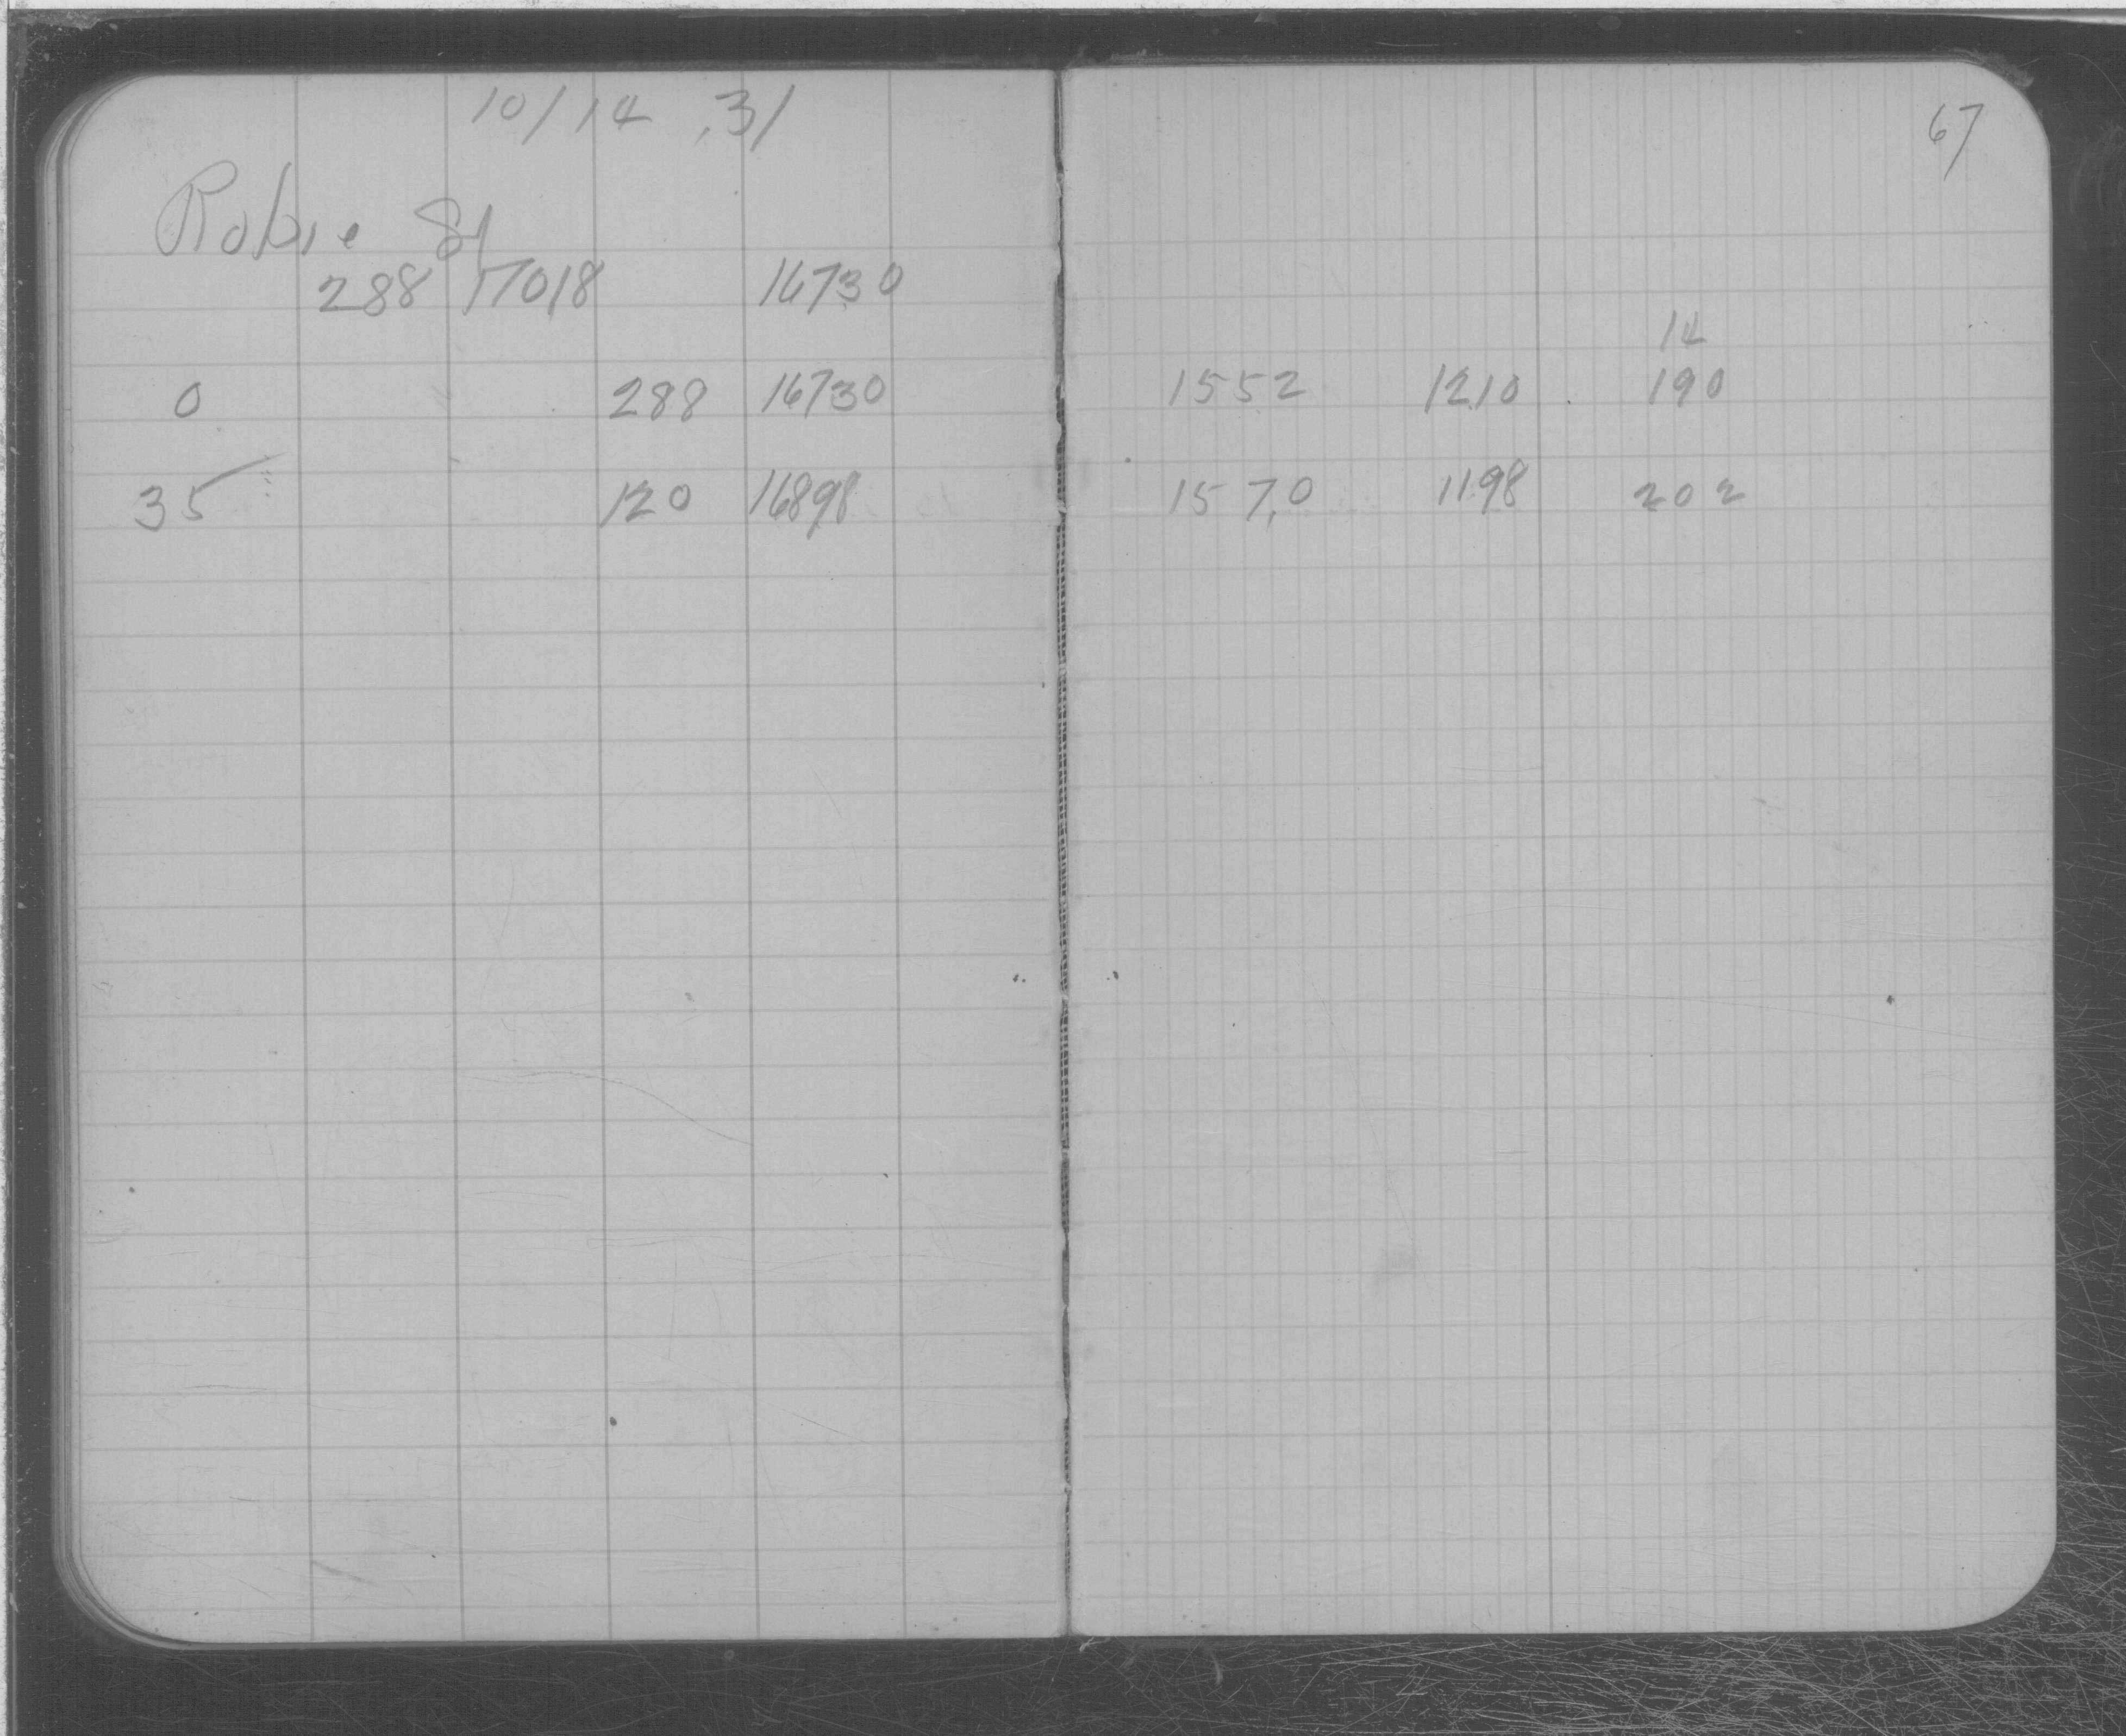 10/14 .31
67
Robie St
288 17018 16730
14
0 288 16730 1552 1210 190
35 120 16898 157.0 1198 202